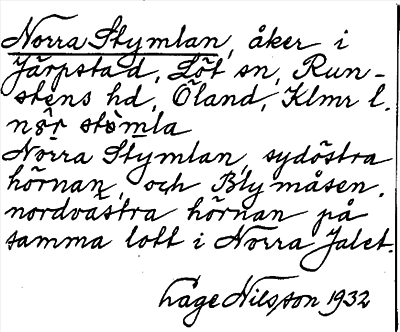 Norra Stymlan, åker i
Järpstad, Löt sn, Run-
stens hd, Öland, Klmr l.
nö̂r stömla
Norra Stymlan, sydöstra
hörnan, och Blymåsen,
nordvästra hörnan på
samma lott i Norra Jalet.
Låge Nilsson 1932